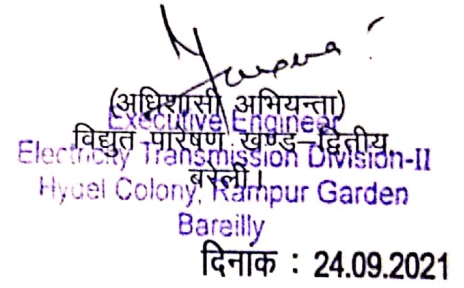 (अधिशासी अभियन्ता)
Executive Engineer
विद्युत पारेषण खण्ड–द्वितीय,
Electricity Transmission Division-II
बरेली।
Hydel Colony, Rampur Garden
Bareilly
दिनाक : 24.09.2021